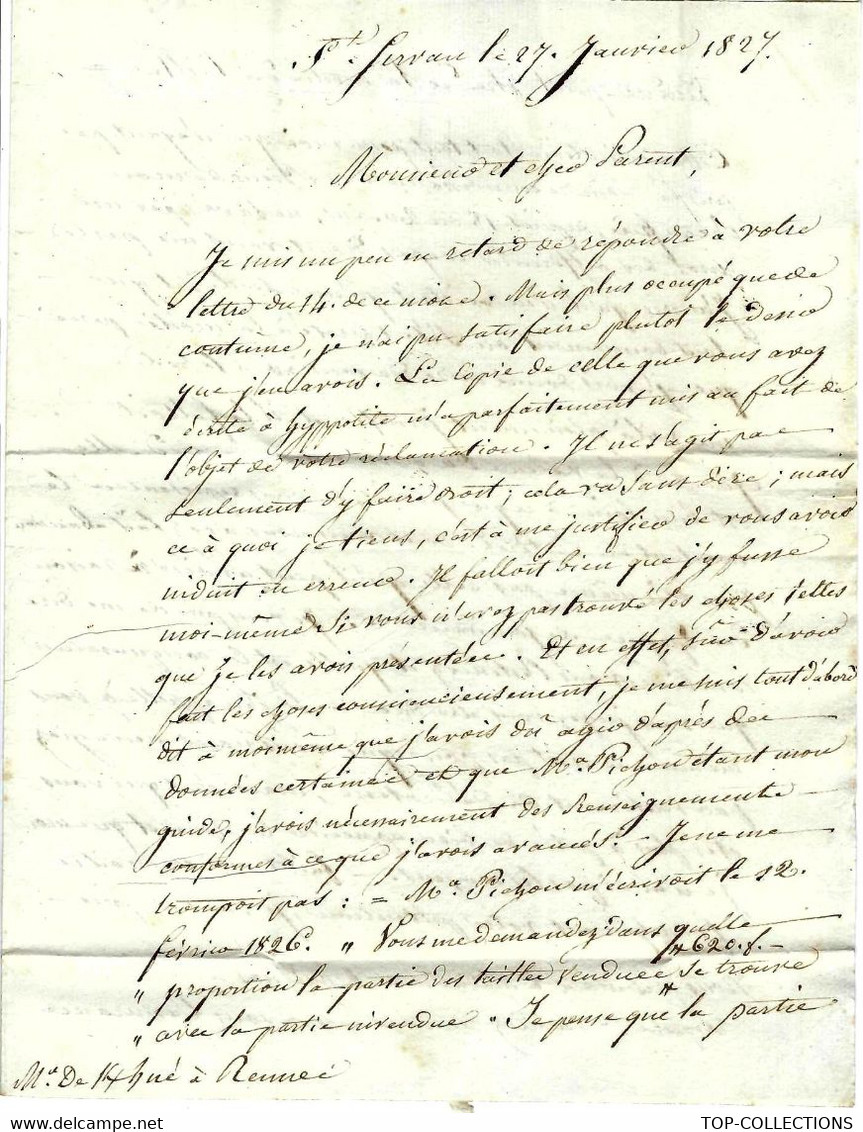 St. Servan le 27. Janvier 1827.
Monsieur et cher Parent,
Je suis un peu en retard de répondre à votre
lettre du 14. de ce mois. Mais plus occupé que de
coutume, je n'ai pu satisfaire plutot le desir
que j'en avois. La Copie de celle que vous avez
écrite à hyppolite m'a parfaitement mis au fait de
l'objet de votre réclamation. Il ne s'agis pas
seulement d'y faire droit; cela va sans dire; mais
ce à quoi je tiens, c'est à me justifier de vous avoir
induit en erreur. Il falloit bien que j'y fusse
moi-même si vous n'avez pas trouvé les choses telles
que je les avois présentées. Et en effet, sûr d'avoir
fait les choses consciencieusement, je me suis tout d'abord
dit à moi même que j'avois dû agir d'après des
données certaines et que Mr. Pichon étant mon
guide, j'avois nécessairement des renseignements
conformes à ce que j'avois avancés. - Je ne me
trompoit pas: = Mr. Pichon m'écrivoit le 12.
février 1826. " Vous me demandez dans quelle
# 620. f. -
" proportion la partie des tailles vendues se trouve
" avec la partie invendue. Je pense que # la partie
Mr. De à Rennes
TOP-COLLECTIONS